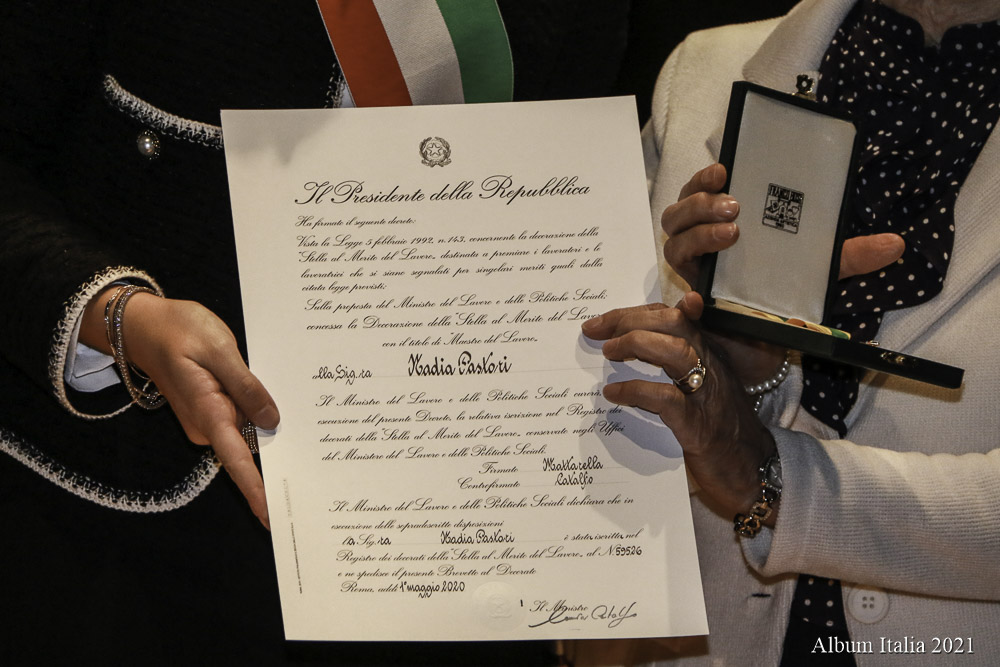 Il Presidente della Repubblica
Ha firmato il seguente decreto:
Vista la Legge 5 febbraio 1992, n. 143, concernente la decorazione della
"Stella al Merito del Lavoro„ destinata a premiare i lavoratori e le
lavoratrici che si siano segnalati per singolari meriti quali dalla
citata legge previsti;
Sulla proposta del Ministro del Lavoro e delle Politiche Sociali;
concessa la Decorazione della "Stella al Merito del Lavoro„
con il titolo di "Maestro del Lavoro„
alla Sig.ra Nadia Pastori
Il Ministro del Lavoro e delle Politiche Sociali curerà,
esecuzione del presente Decreto, la relativa iscrizione nel Registro dei
decorati della "Stella al Merito del Lavoro„ conservato negli Uffici
del Ministero del Lavoro e delle Politiche Sociali.
Firmato Mattarella
Controfirmato Catalfo
Il Ministro del Lavoro e delle Politiche Sociali dichiara che in
esecuzione delle sopradescritte disposizioni
la Sig.ra Nadia Pastori è stata iscritta nel
Registro dei decorati della "Stella al Merito del Lavoro„ al N. 59526
e ne spedisce il presente Brevetto al Decorato
Roma, addì 1° maggio 2020
Il Ministro
Album Italia 2021